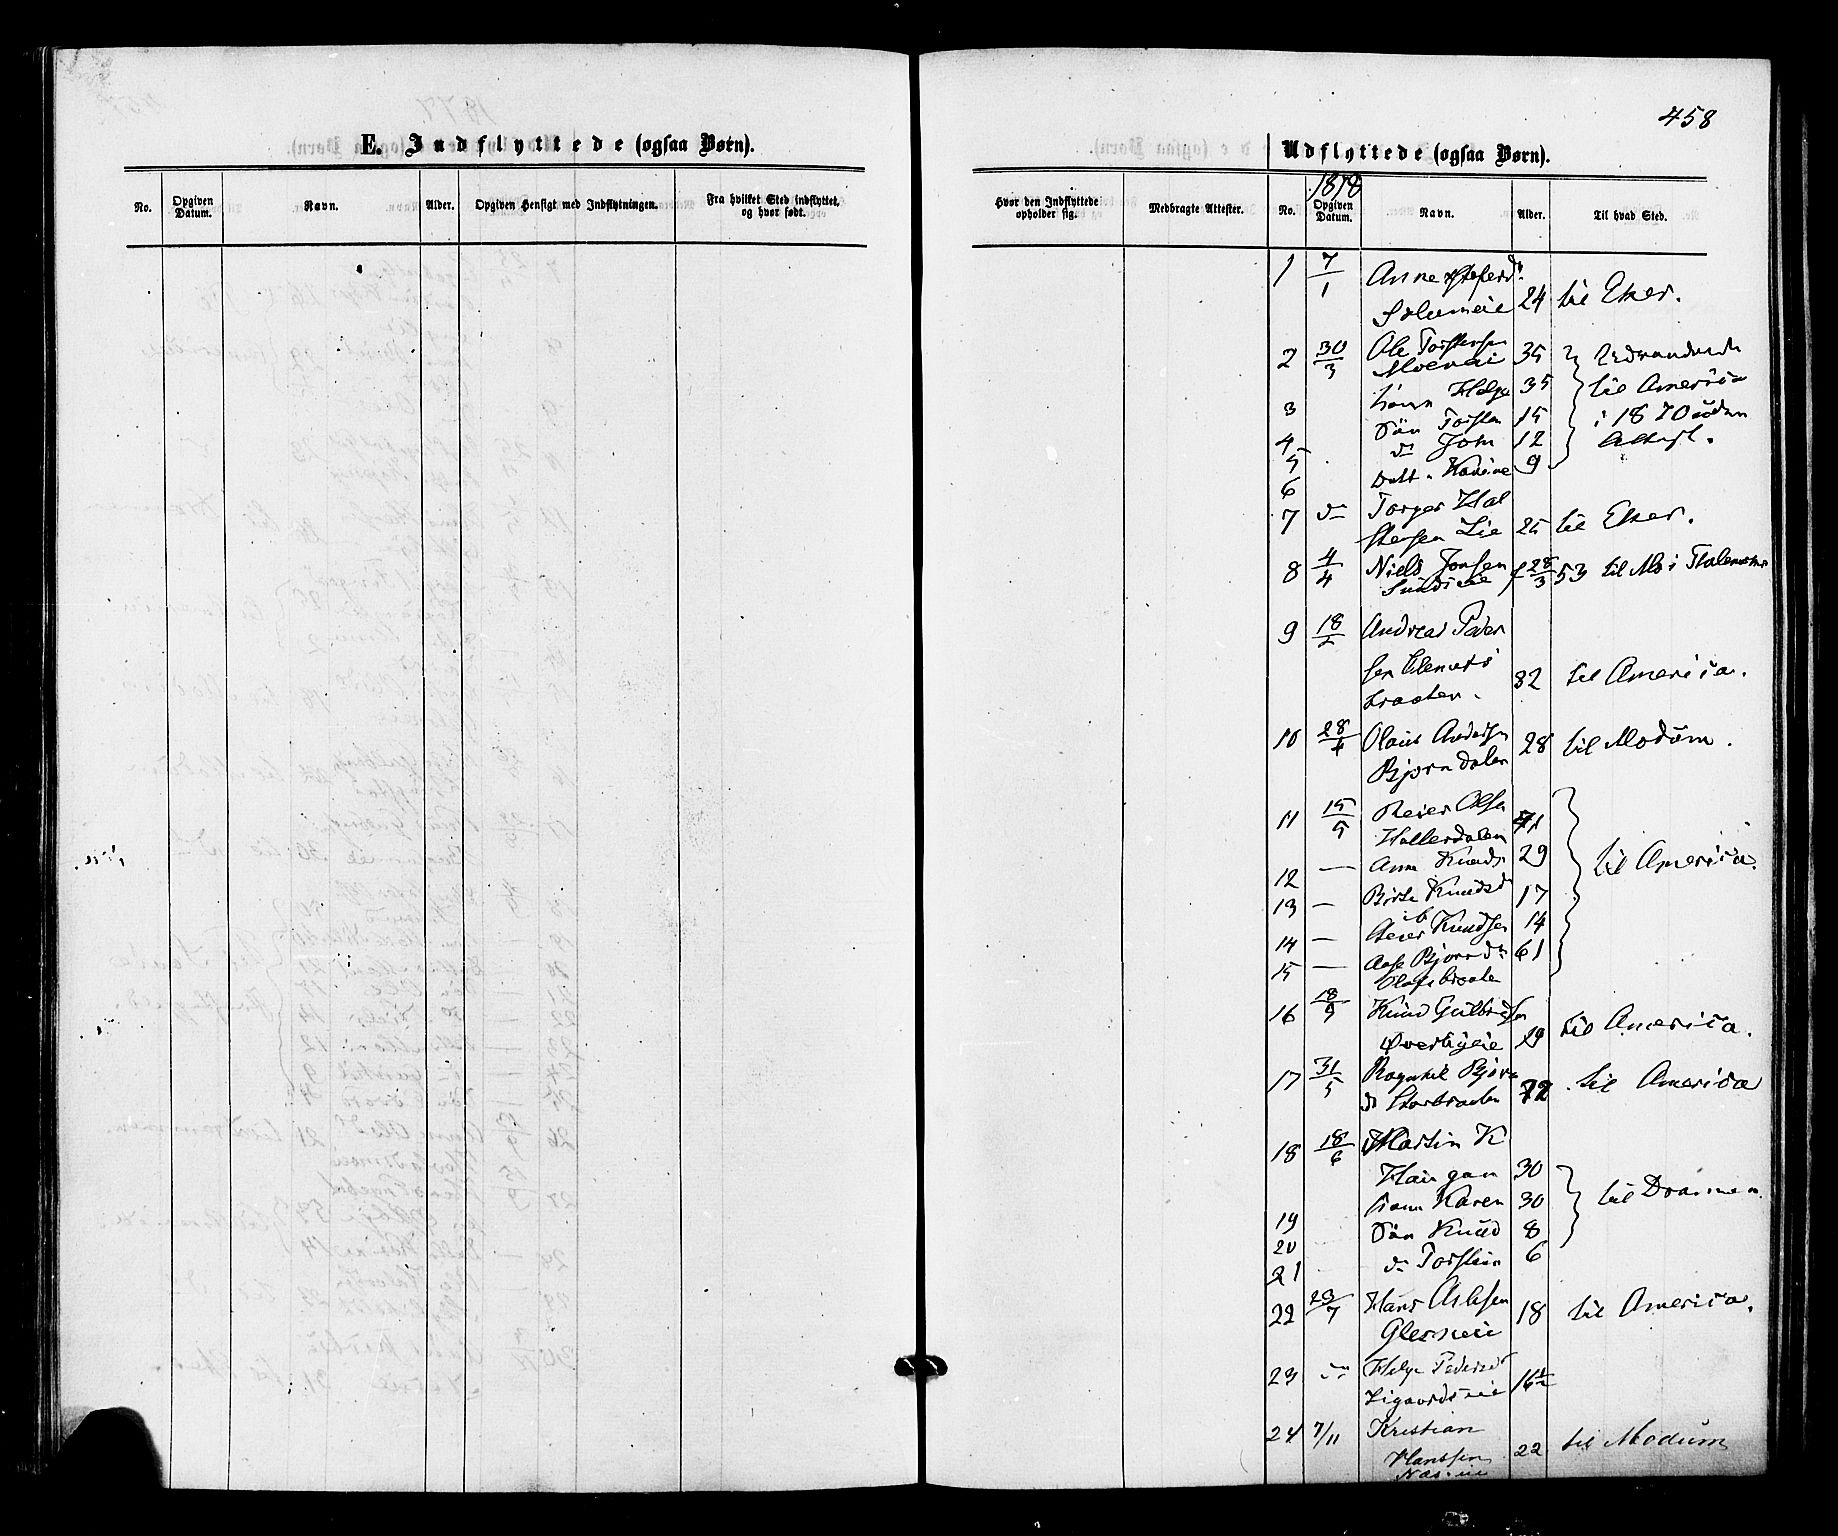 458
E. Indflyttede (ogsaa Børn).
No.
Opgiven Datum.
Navn.
Alder.
Opgiven Hensigt med Indflytningen.
Fra hvilket Sted indflyttet, og hvor født.
Udflyttede (ogsaa Børn).
1878
Hvor den Indflyttede opholder sig.
Medbragte Attester.
No.
Opgiven Datum.
Navn.
Alder.
Til hvad Sted.
1 7/1 Anne
24 til Eker.
2 30/3 Ole Torstensen 35
Moeneie
3 Helge 35 til America
4 Søn Torsten 15 i 1870 uden
5 dn John 12 Attest.
6 Datt. Karine 9
7 dn Torger Hal
stensen Lie 25 til Eker.
8 4/4 Niels Jonsen f 28/3 53 til Mo i Thelemarken
9 18/2 Andreas Peder
sen
braaten. 82 til America.
10 28/4 Olaus Andersen 28 til Modum.
Bjørndalen
11 15/5 Reier Olsen
Hallerdalen
12 — Anne Knuds 29 til America.
13 — Birte Knudsd 17
14 — Reier Knudsen 14
15 — Aase Bjørnsdn 61
Olafsbraaten
16 18/5 Knud Gulbrandsen
Øverbyeie 19 til America.
17 31/5 Ragnhil Bjørn
dr Storbraaten 72 til America
18 18/6 Martin K
Haugan 30
19 Karen 30 til Drammen
20 Søn Knud 8
21 dn Torstein 6
22 23/7 Hans Aslesen 18 til America.
Glesneeie
23 dn Helge Pedersd
Sigaardseie 16½
24 7/11 Kristian
Hanssen 22 til Modum
Næseie